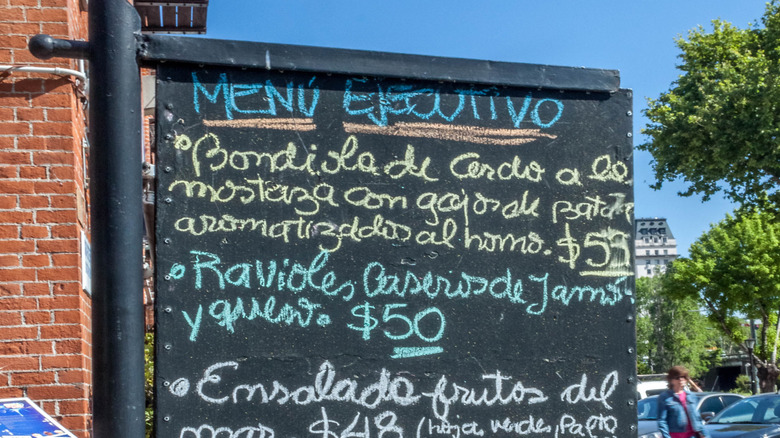 MENÚ EJECUTIVO
• Bondiola de Cerdo a la
mostaza con gajos de Batata
aromatizados al horno. $55
• Ravioles Caseros de Jamón
y queso. $50
• Ensalada frutos del
mar $48 (hojas verdes, palta